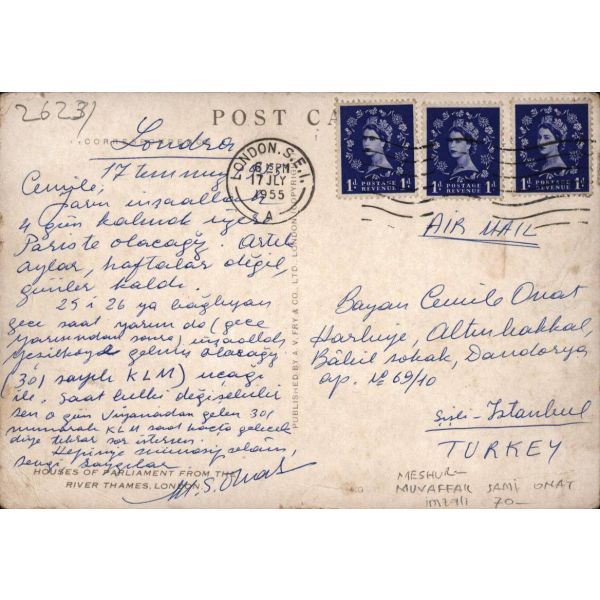 26231
POST CA
CORRES
Londra
17 temmuz
LONDON.S.E.1.
6 15 PM
17 JLY
1955
A
1D POSTAGE REVENUE 1D
1D POSTAGE REVENUE 1D
1D POSTAGE REVENUE 1D
AIR MAIL
Cemile,
Yarın inşaallah
4 gün kalmak üzere
Pariste olacağız. Artık
aylar, haftalar değil
günler kaldı.
25 i 26 ya bağlıyan
gece saat yarım da (gece
yarısından sonra) inşaallah
Yeşilköyde gelmiş olacağız
(301 sayılı KLM) uçağı
ile. Saat belki değişebilir
sen o gün Viyanadan gelen 301
numaralı KLM saat kaçta gelecek
diye tekrar sor istersen.
Hepinize selâm,
sevgi saygılar
M. S. Onat
HOUSES OF PARLIAMENT FROM THE
RIVER THAMES, LONDON.
PUBLISHED BY A.V. FRY & CO., LTD. LONDON COPYRIGHT
Bayan Cemile Onat
Harbiye, Altınbakkal,
Bâbil sokak, Dandorya
ap. No 69/10
Şişli - Istanbul
TURKEY
MESHUR
MUVAFFAK SAMİ ONAT
imzalı 70-